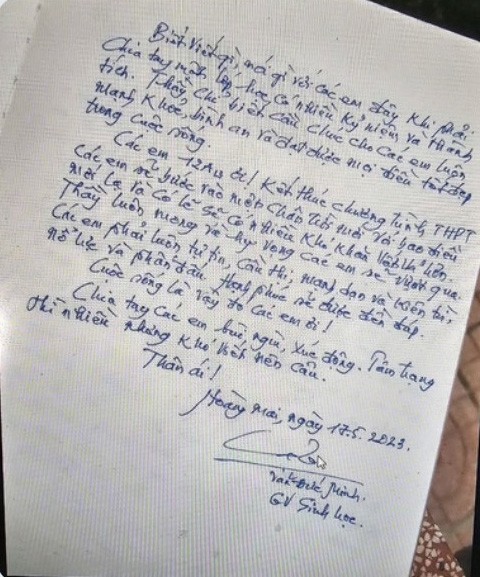 Biết viết gì, nói gì với các em đây khi phải
Chia tay một lớp học có nhiều kỷ niệm và thành
tích. Thầy chỉ biết cầu chúc cho các em luôn
mạnh khỏe, bình an và đạt được mọi điều tốt đẹp
trong cuộc sống.
Các em 12A ơi! Kết thúc chương trình THPT
các em sẽ bước vào một chân trời mới với bao điều
mới lạ và có lẽ sẽ có nhiều khó khăn vất vả hơn.
Thầy luôn mong và hy vọng các em sẽ vượt qua.
Các em phải luôn tự tin, cần thị, mạnh dạn và kiên trì,
nỗ lực và phấn đấu. Hạnh phúc sẽ được đền đáp.
Cuộc sống là vậy đó các em ơi!
Chia tay các em, bùi ngùi, xúc động. Tâm trạng
thì nhiều nhưng khó viết nên câu.
Thân ái!
Hoàng Mai, ngày 17.5.2023.
Đức Minh.
GV Sinh học.